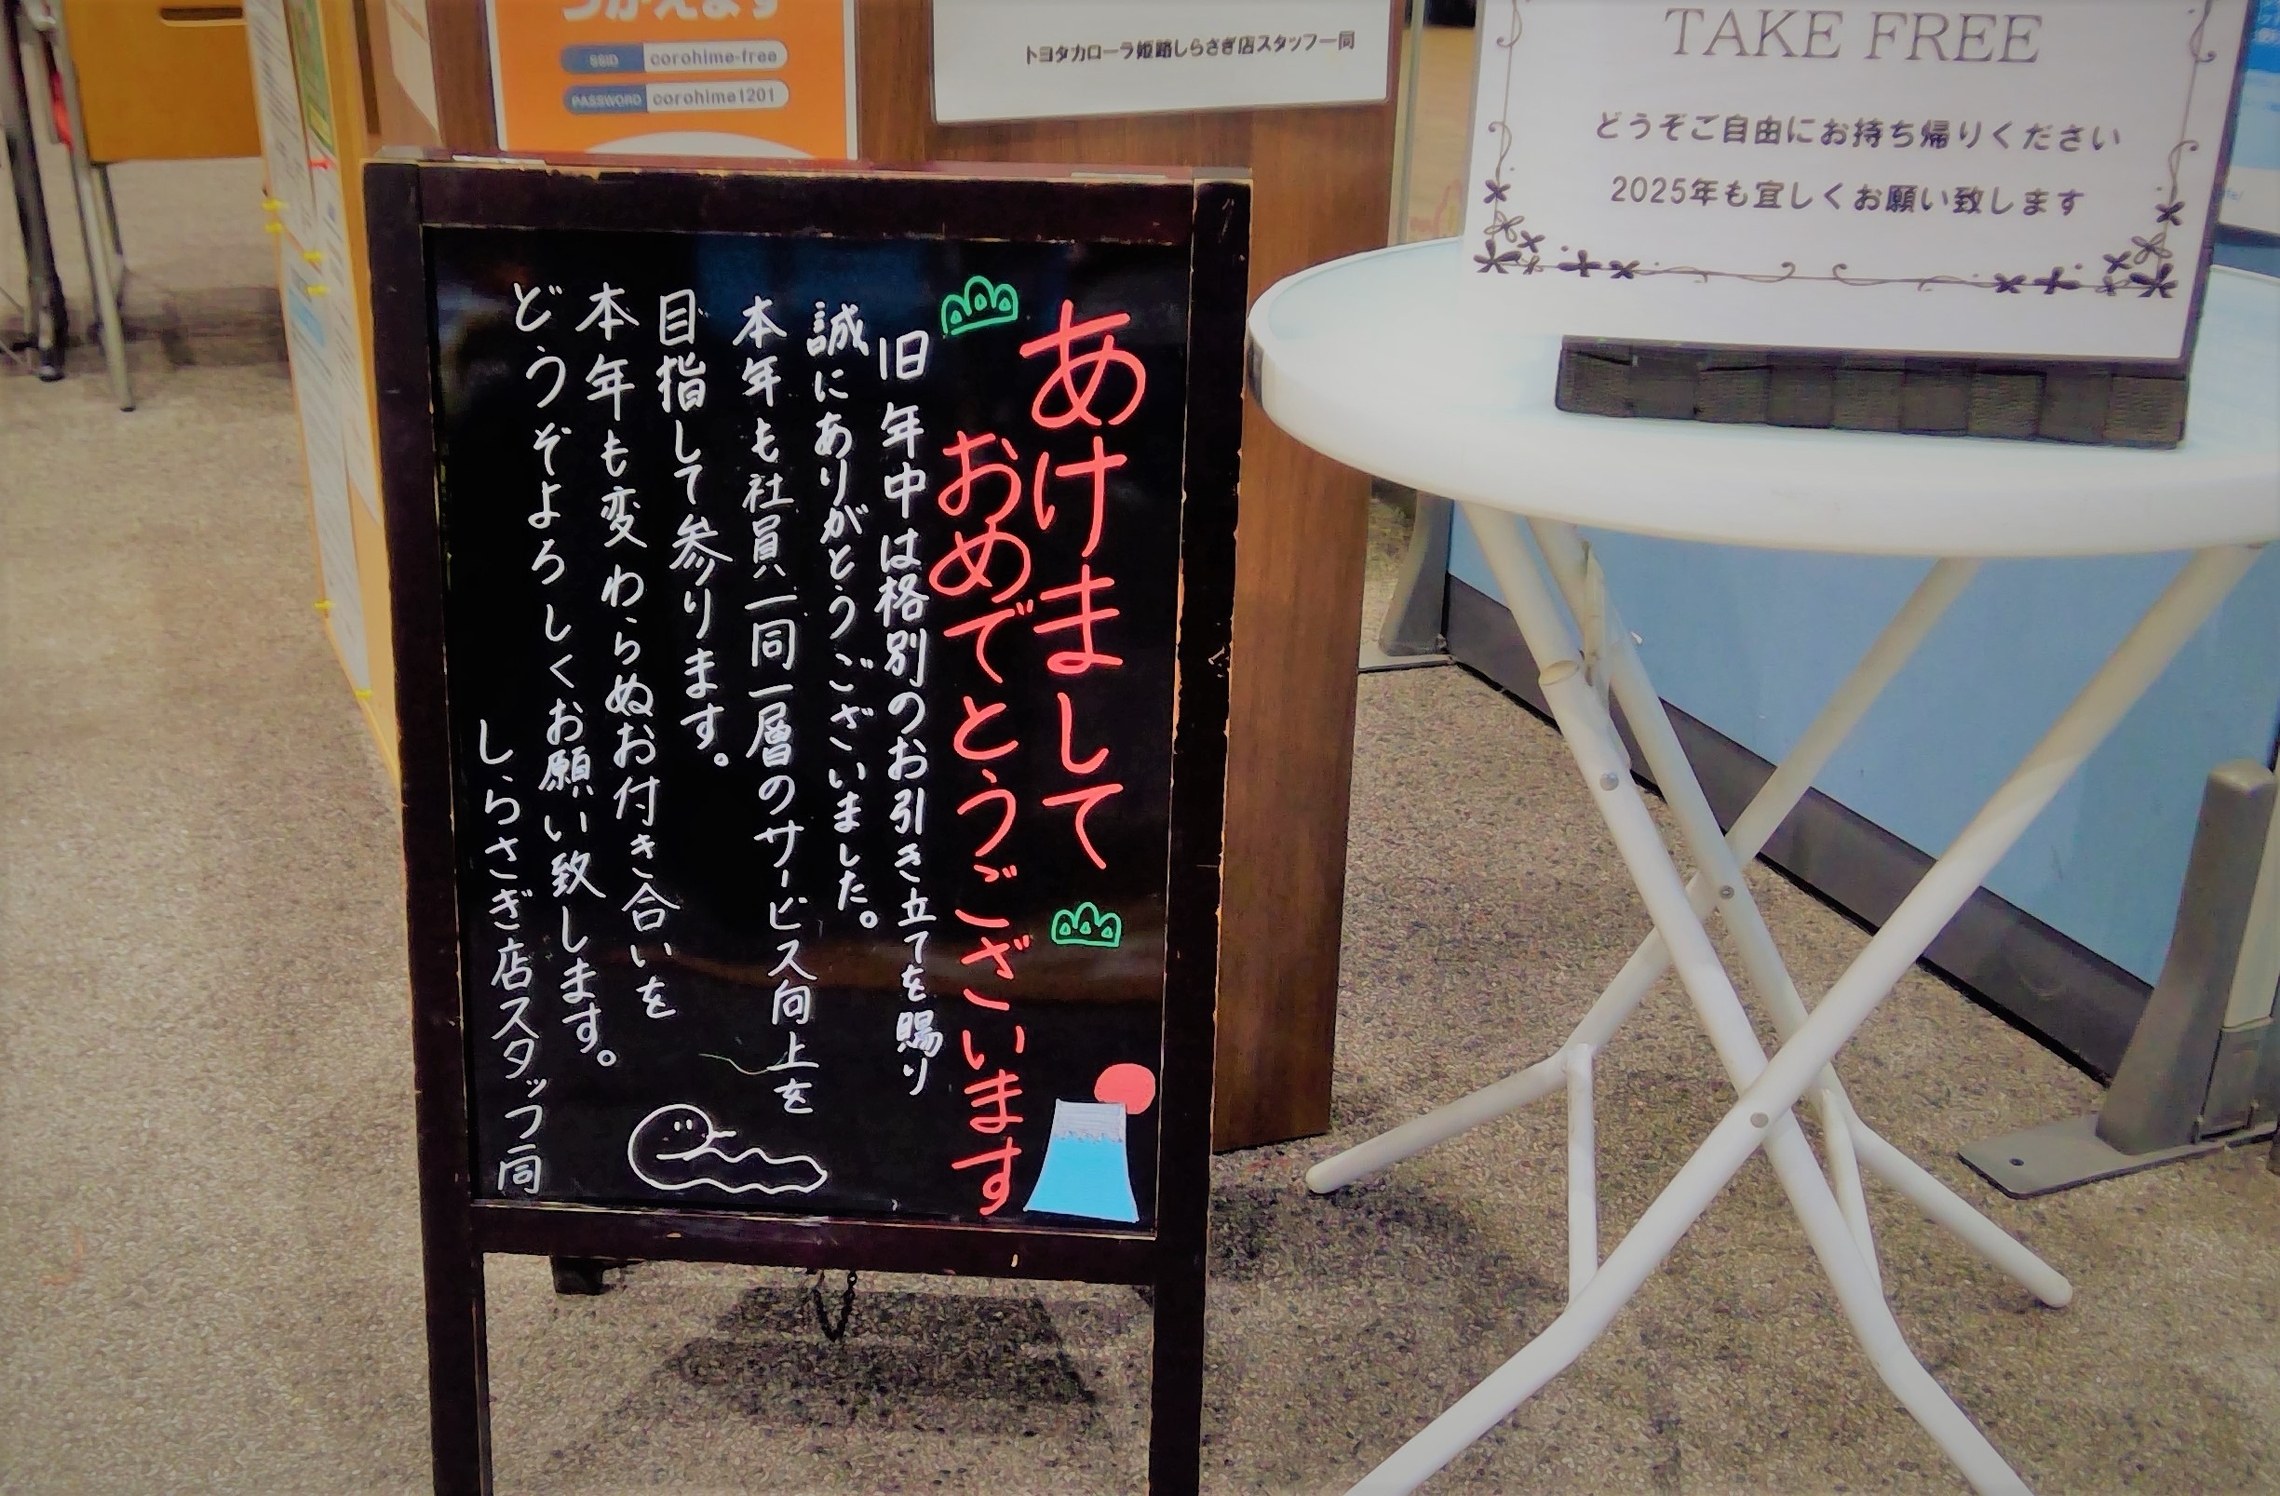 つかえます
SSID corohime-free
PASSWORD corohime1201
トヨタカローラ姫路しらさぎ店スタッフ一同
TAKE FREE
どうぞご自由にお持ち帰りください
2025年も宜しくお願い致します
あけまして
おめでとうございます
旧年中は格別のお引き立てを賜り
誠にありがとうございました。
本年も社員一同一層のサービス向上を
目指して参ります。
本年も変わらぬお付き合いを
どうぞよろしくお願い致します。
しらさぎ店スタッフ一同